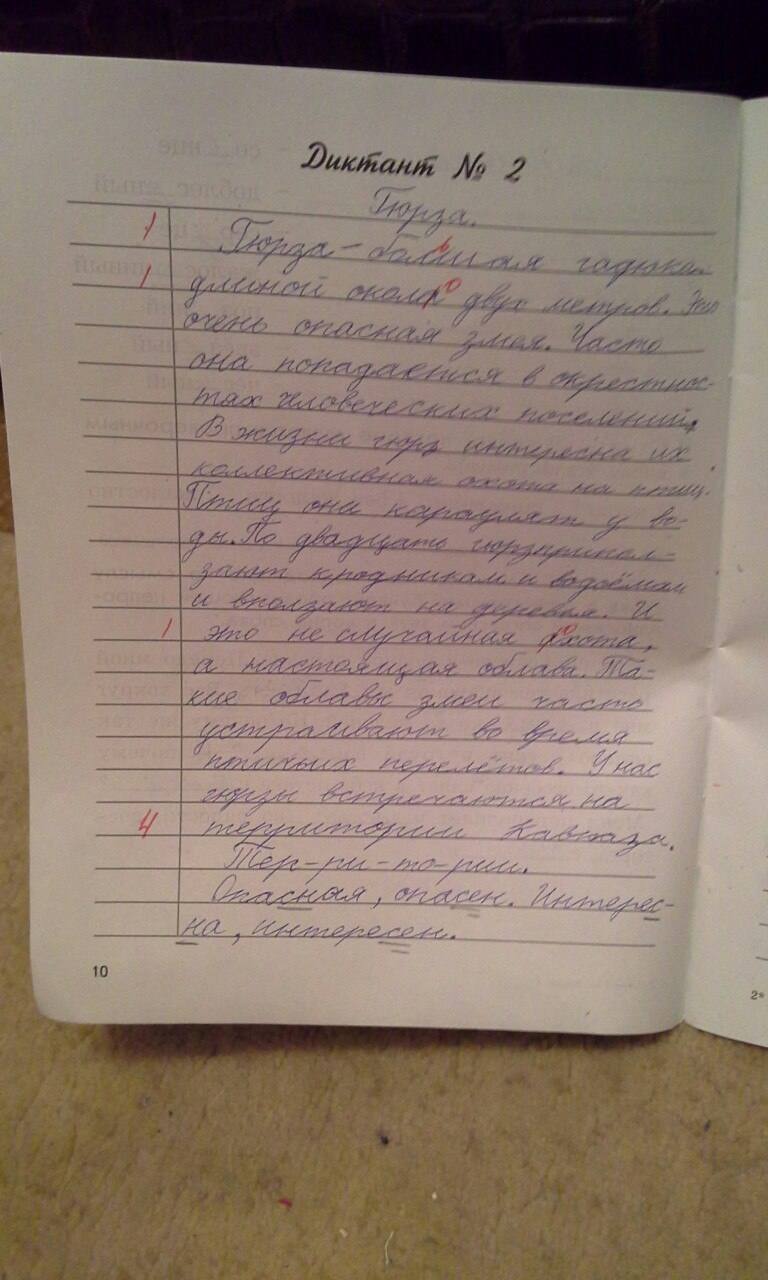 Диктант № 2
Гюрза.
1
Гюрза – большая гадюка
1
длиной около двух метров. Это
очень опасная змея. Часто
она попадается в окрестнос-
тях человеческих поселений.
В жизни гюрз интересна их
коллективная охота на птиц.
Птиц они караулят у во-
ды. По двадцать гюрзприпол-
зают к родникам и водоёмам
и вползают на деревья. И
1
это не случайная охота,
а настоящая облава. Та-
кие облавы змеи часто
устраивают во время
птичьих перелётов. У нас
гюрзы встречаются на
4
территории Кавказа.
Тер-ри-то-рии.
Опасная, опасен. Интерес-
на, интересен.
10
2*